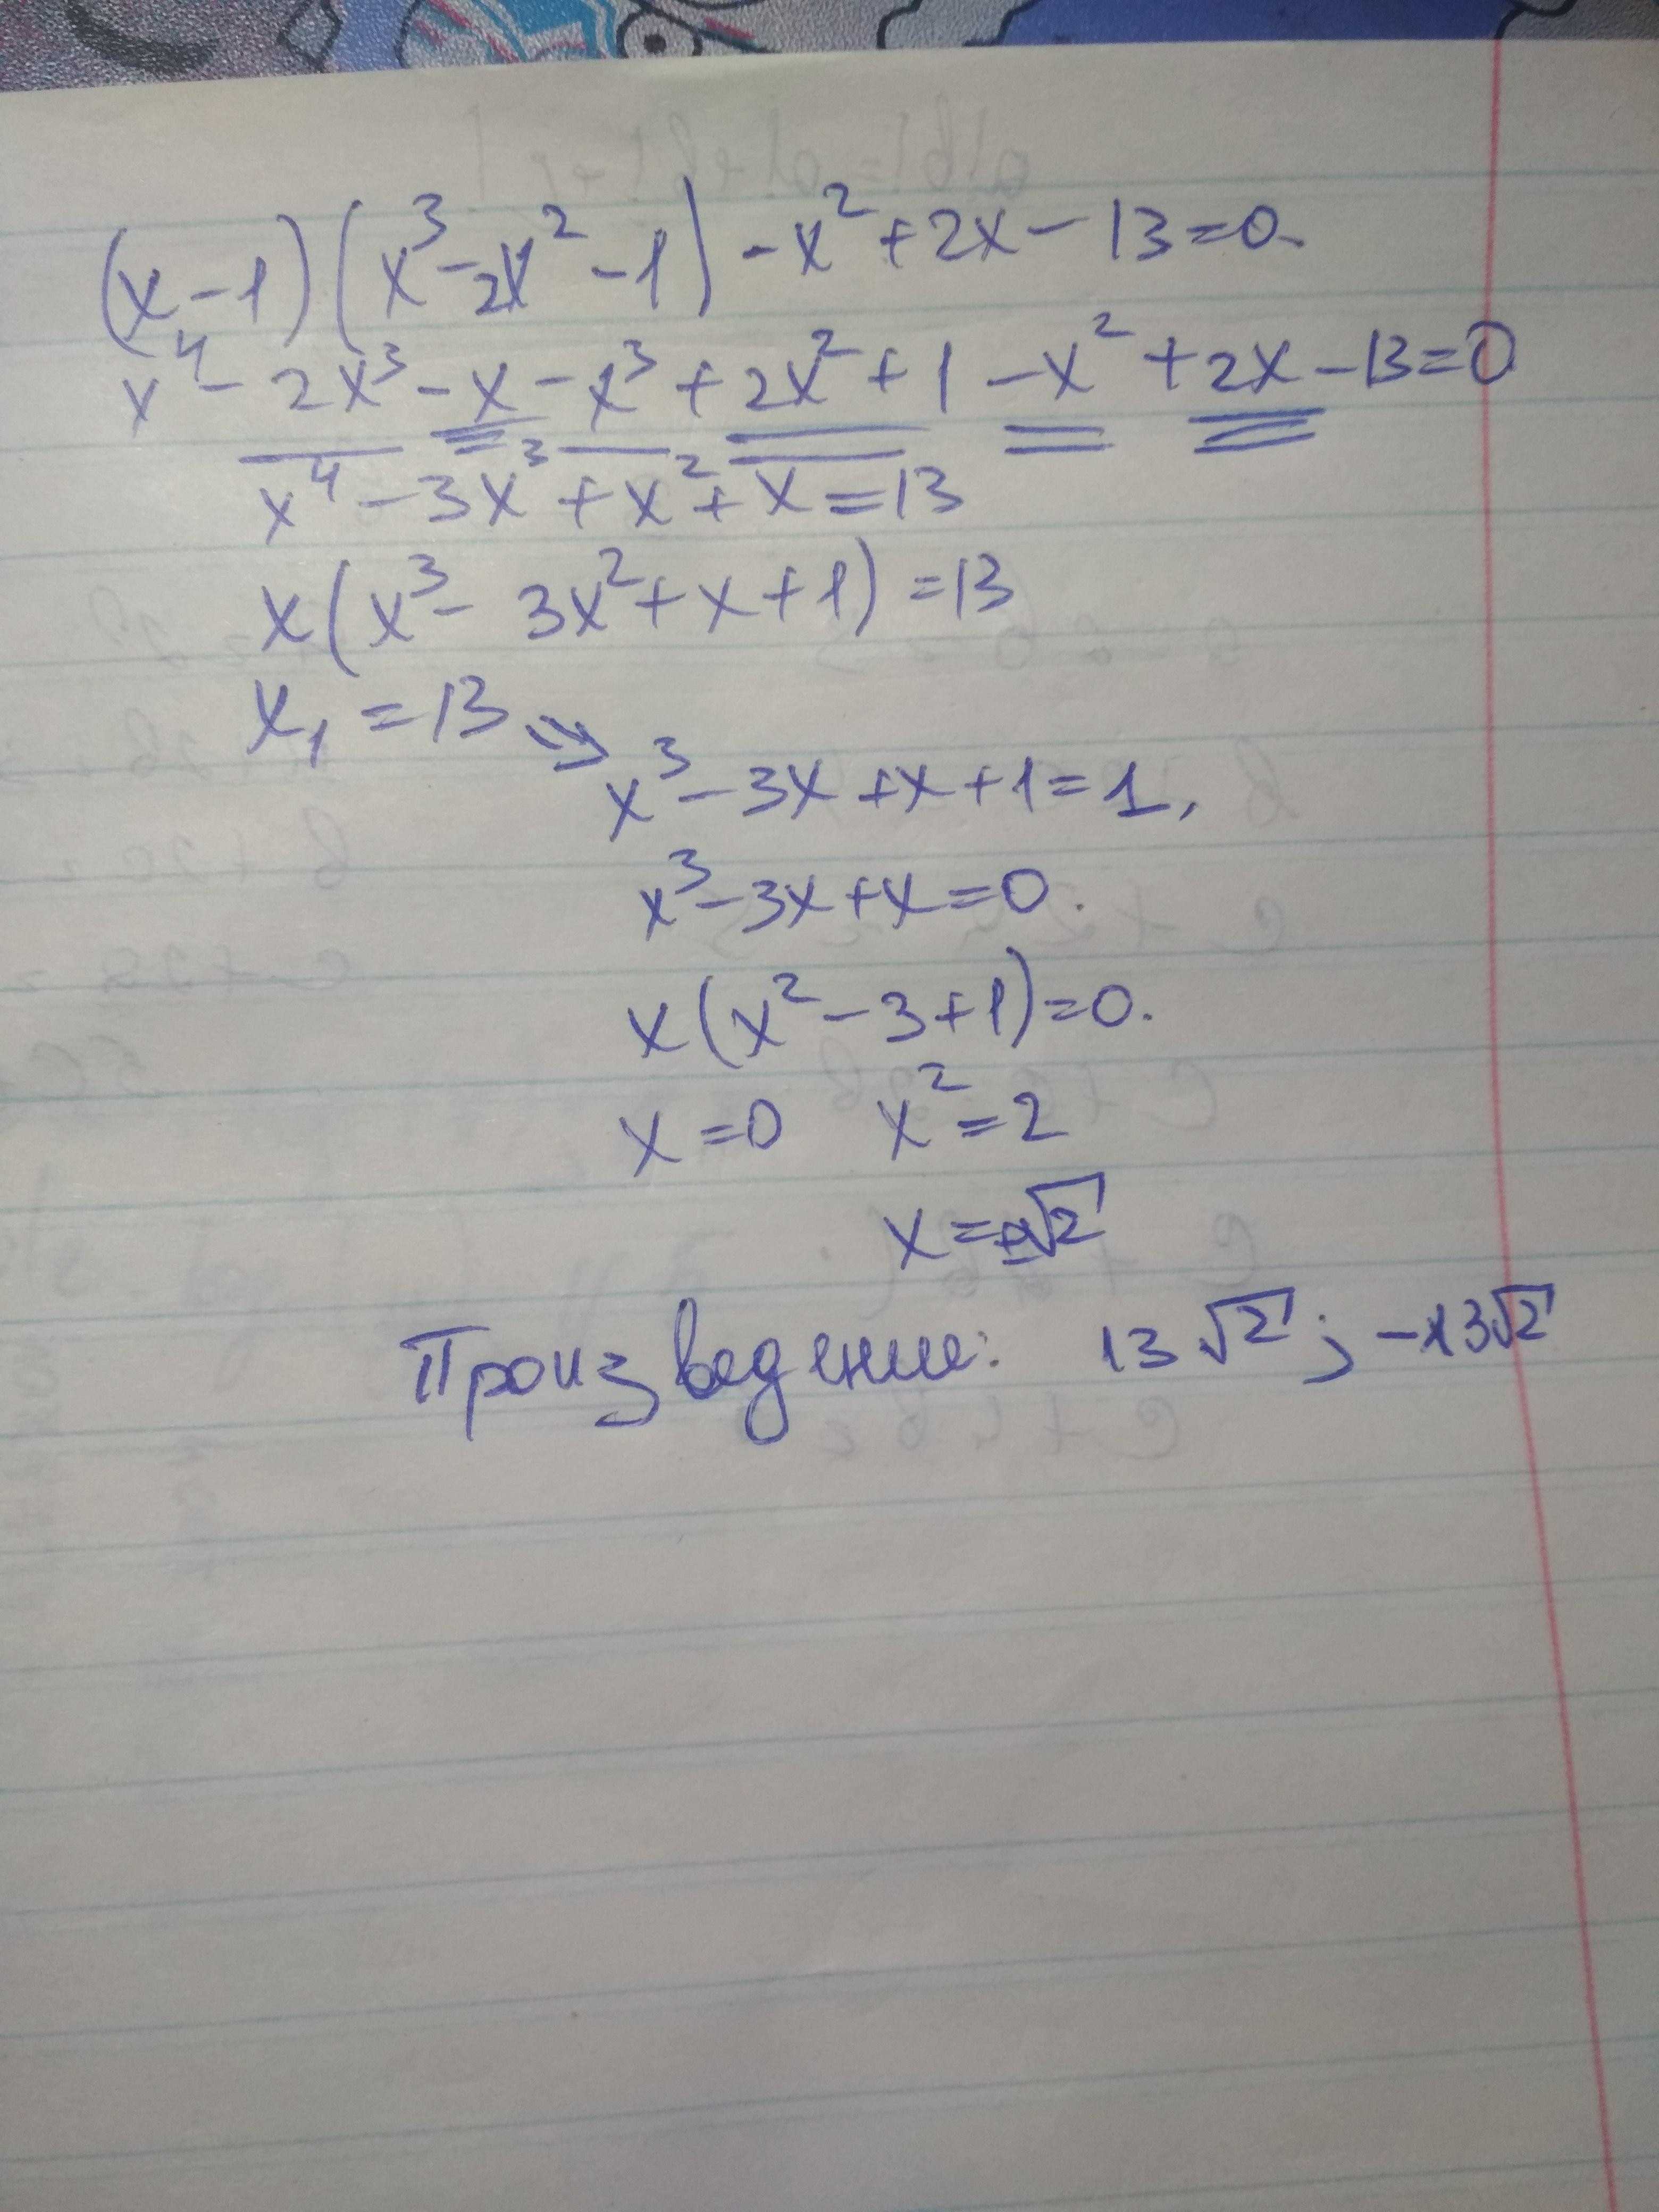 (x-1)(x³-2x²-1)-x²+2x-13=0.
x⁴-2x³-x-x³+2x²+1-x²+2x-13=0
x⁴-3x³+x²+x=13
x(x³-3x²+x+1)=13
x₁=13
x³-3x+x+1=1,
x³-3x+x=0.
x(x²-3+1)=0.
x=0 x²=2
x=±√2
Произведение: 13√2; -13√2